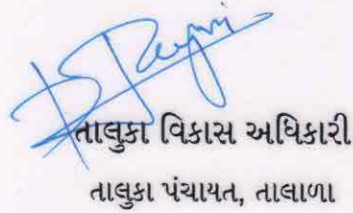 તાલુકા વિકાસ અધિકારી
તાલુકા પંચાયત, તાલાળા